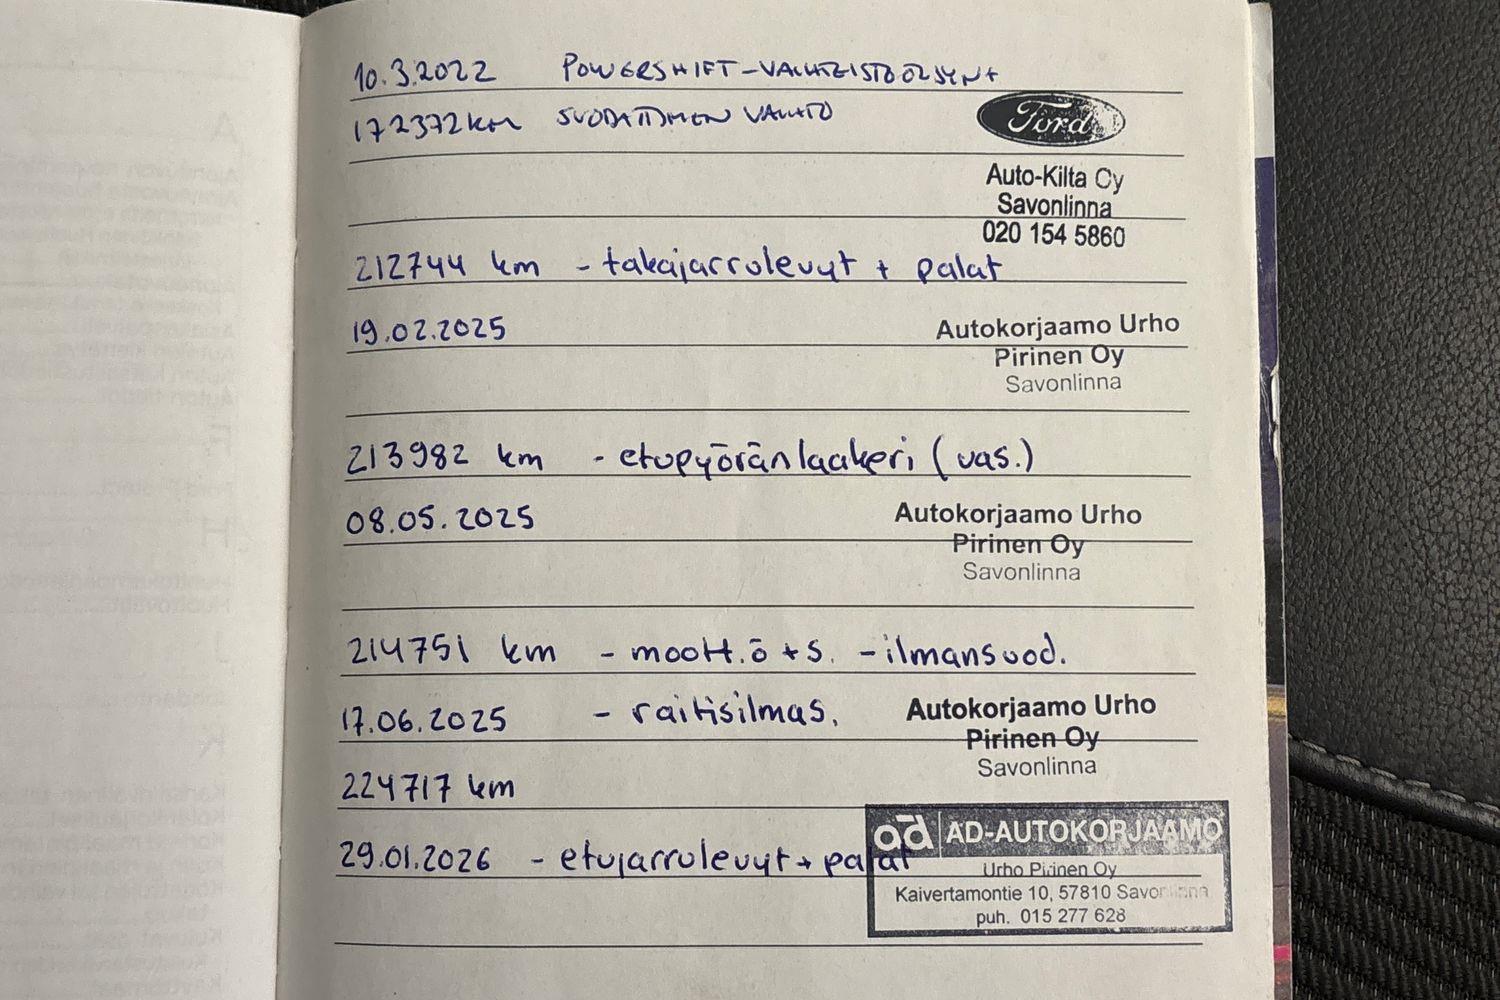 10.3.2022 POWERSHIFT-VAIHTEISTOÖLJYN +
172372 km SUODATTIMEN VAIHTO
Ford
Auto-Kilta Oy
Savonlinna
020 154 5860
212744 km - takajarrulevyt + palat
19.02.2025
Autokorjaamo Urho
Pirinen Oy
Savonlinna
213982 km - etupyöränlaakeri (vas.)
08.05.2025
Autokorjaamo Urho
Pirinen Oy
Savonlinna
214751 km - moott.ö + s. - ilmansuod.
17.06.2025 - raitisilmas.
Autokorjaamo Urho
Pirinen Oy
Savonlinna
224717 km
29.01.2026 - etujarrulevyt + palat
ad AD-AUTOKORJAAMO
Urho Pirinen Oy
Kaivertamontie 10, 57810 Savonlinna
puh. 015 277 628